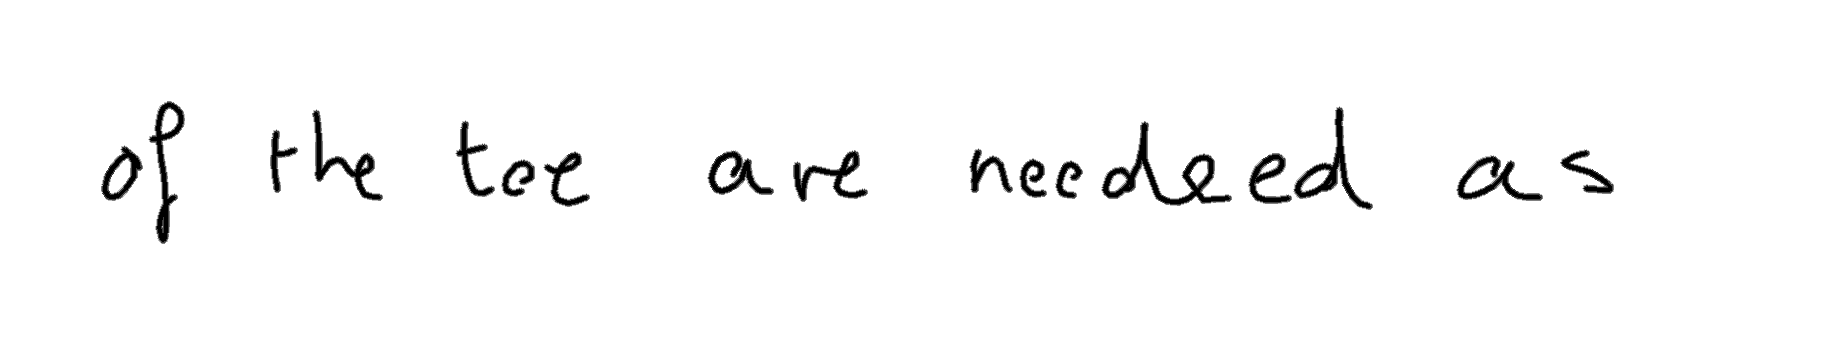 of the tee are needeed as